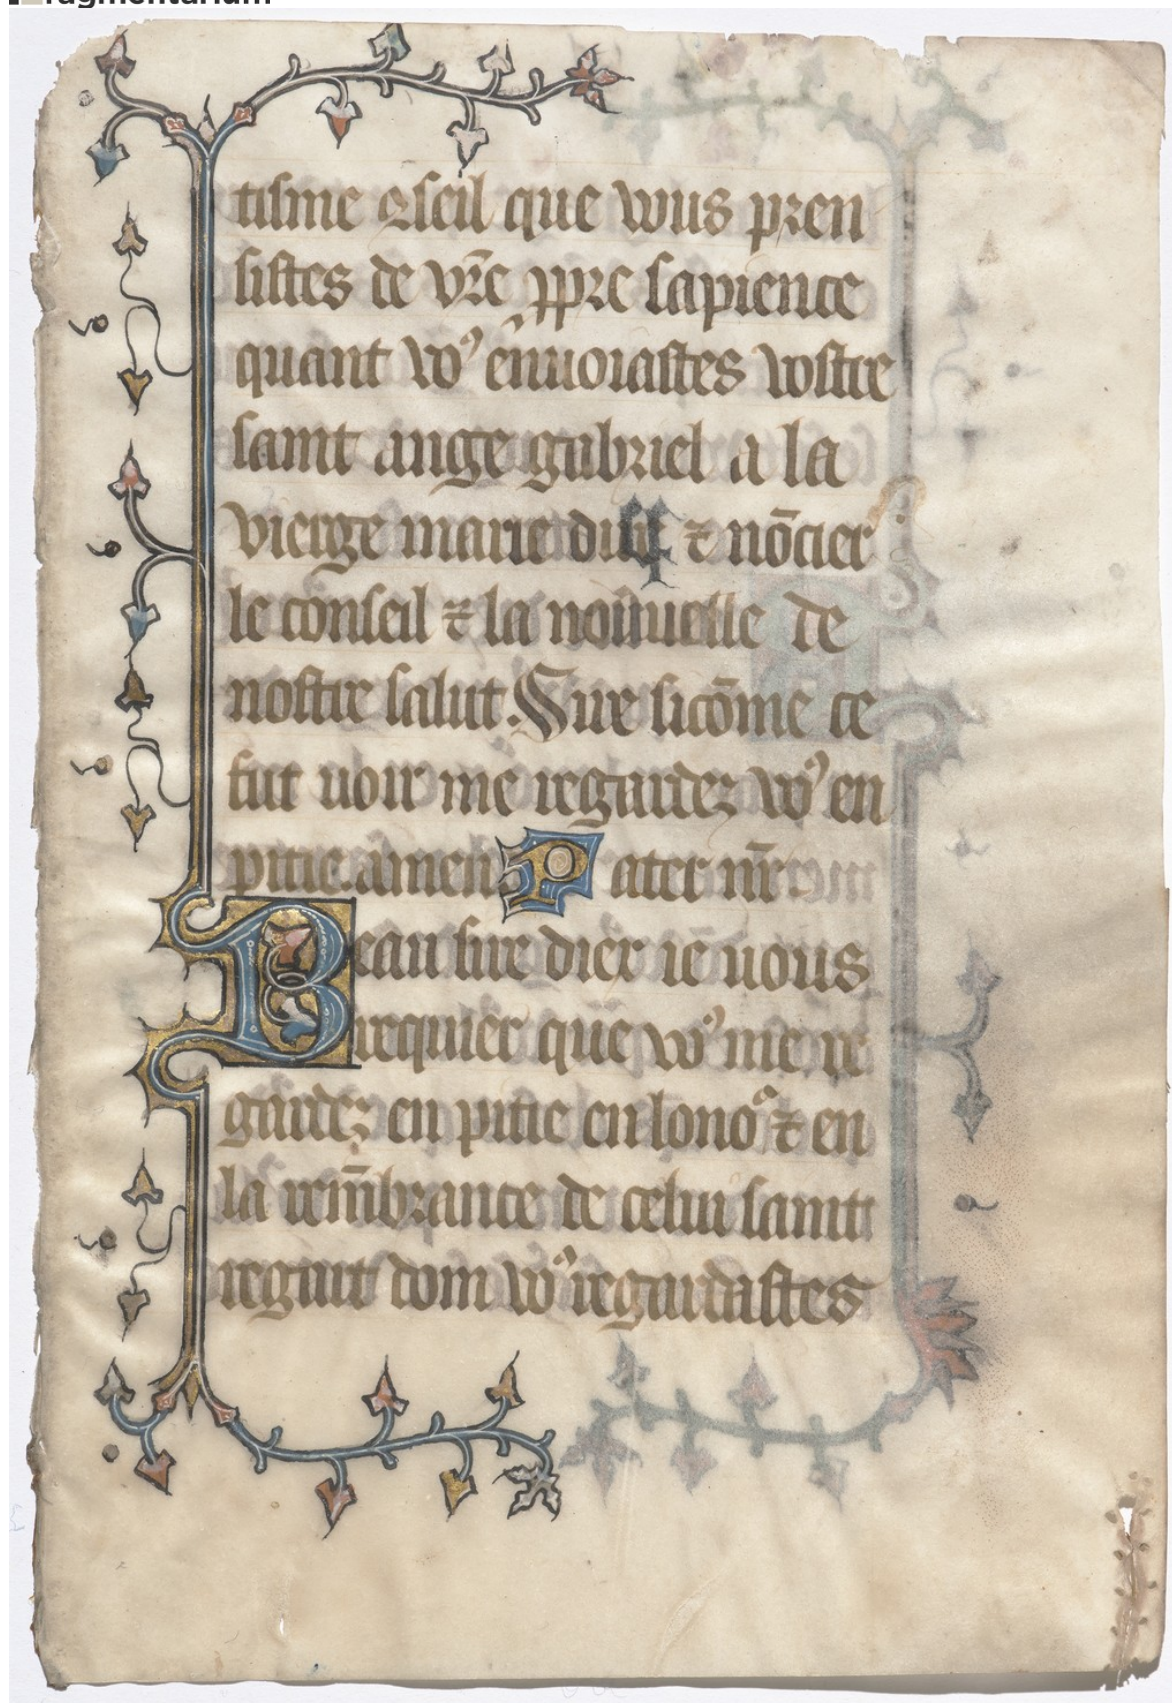 fragmentarium
tisme ꝯseil que vous pren
sistes de vr̄e ꝓpre sapience
quant voꝰ enuoiastes vostre
saint ange gabriel a la
vierge marie ⁊ nōcier
le conseil ⁊ la nouuelle de
nostre salut. Sire sicōme ce
fut uoir me regardez voꝰ en
pitie. amen. Pater nr̄
Beau sire diex ie uous
requier que voꝰ me re
gardez en pitie en lonoᷣ ⁊ en
la remēbrance de celui saint
regart dom voꝰ regardastes